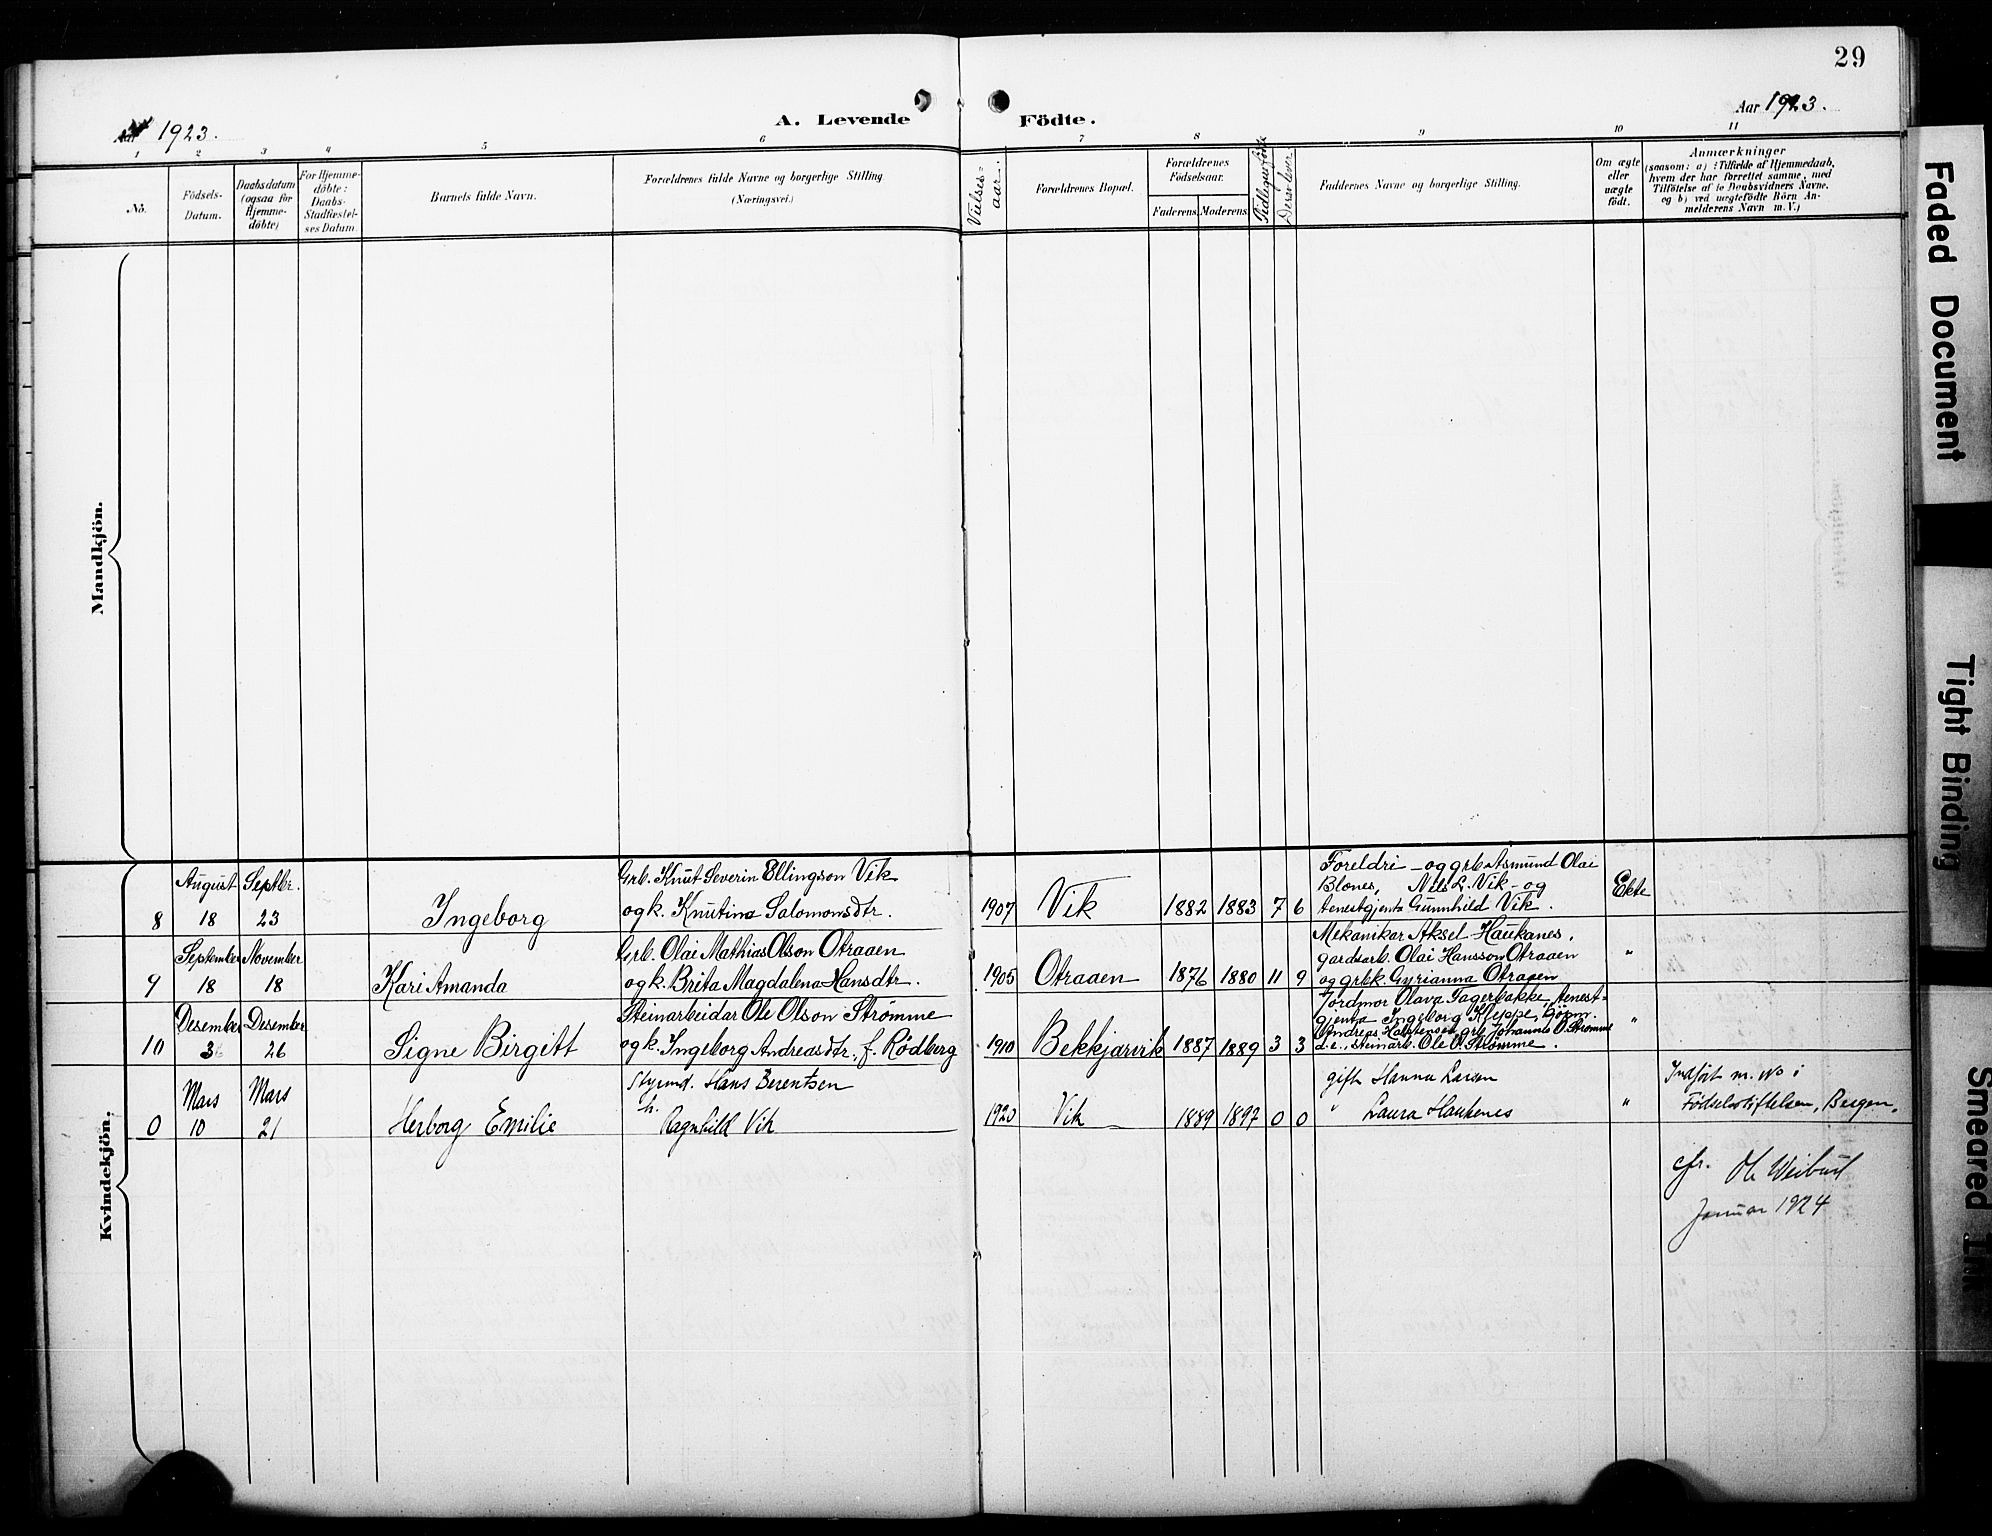 29
1923.
A. Levende Födte.
Aar 1923.
1 2 3 4 5 6 7 8 9 10 11
No.
Födsels-
Datum.
Daabsdatum
(ogsaa for
Hjemme-
döbte)
For Hjemme-
döbte:
Daabs-
Stadfæstel-
ses Datum.
Barnets fulde Navn.
Forældrenes fulde Navne og borgerlige Stilling
(Næringsvei.)
Vielses-
aar.
Forældrenes Bopæl.
Forældrenes
Födselsaar.
Faderens. Moderens.
Tidlegare födte
Derav lever
Faddernes Navne og borgerlige Stilling.
Om ægte
eller
uægte
födt.
Anmærkninger
(saasom: a) i Tilfælde af Hjemmedaab,
hvem der har forrettet samme, med
Tilföielse af to Daabsvidners Navne.
og b) ved uægtefödte Börn An-
melderens Navn m. V.)
Mandkjön.
Kvindekjön.
8
August
18
Septbr.
23
Ingeborg
Grb. Knut Severin Ellingson Vik
og k. Knutina Salomonsdtr.
1907
Vik
1882 1883 7 6
Foreldri - og grb. Asmund Olai
Blones, Nils L. Vik - og
tenestgjenta Gunnhild Vik.
Ekte
9
September
18
November
18
Kari Amanda
Grb. Olai Mathias Olson Otraaen
og k. Brita Magdalena Hansdtr.
1905
Otraaen
1876 1880 11 9
Mekanikar Aksel Haukanes,
gardsarb. Olai Hansson Otraaen
og grbk. Gyrianna Otraaen
"
10
Desember
3
Desember
26
Signe Birgitt
Steinarbeidar Ole Olson Strömme
og k. Ingeborg Andreasdtr., f. Rödberg
1910
Bekkjarvik
1887 1889 3 3
Jordmor Olava Fagerbakke, tenest-
gjenta Ingeborg Kleppe,
Andreas grb. Johannes O. Strömme
d.e., steinarb. Ole O. Strömme.
"
0
Mars
10
Mars
21
Herborg Emilie
Styrmd. Hans Berentsen
h. Ragnhild Vik
1920
Vik
1889 1897 0 0
gift Hanna Larsen
" Laura Haukenes
"
Indfört m. No i
Födselsstiftelsen, Bergen.
cfr.
Januar 1924
Faded Document
Tight Binding
Smeared Ink